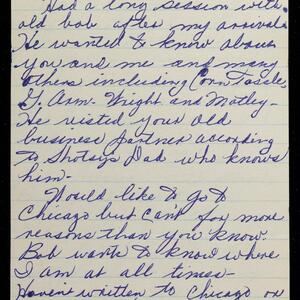 Had a long session with
old bob after my arrival.
He wanted to know about
you and me and many
others including Corn Tassle,
G. Arm- Wright and Motley-
He visted your old
business partner according
to Shotsys Dad who knows
him-
Would like to go to
Chicago but can't for more
reasons than you know
Bob wants to know where
I am at all times-
Haven't written to Chicago on